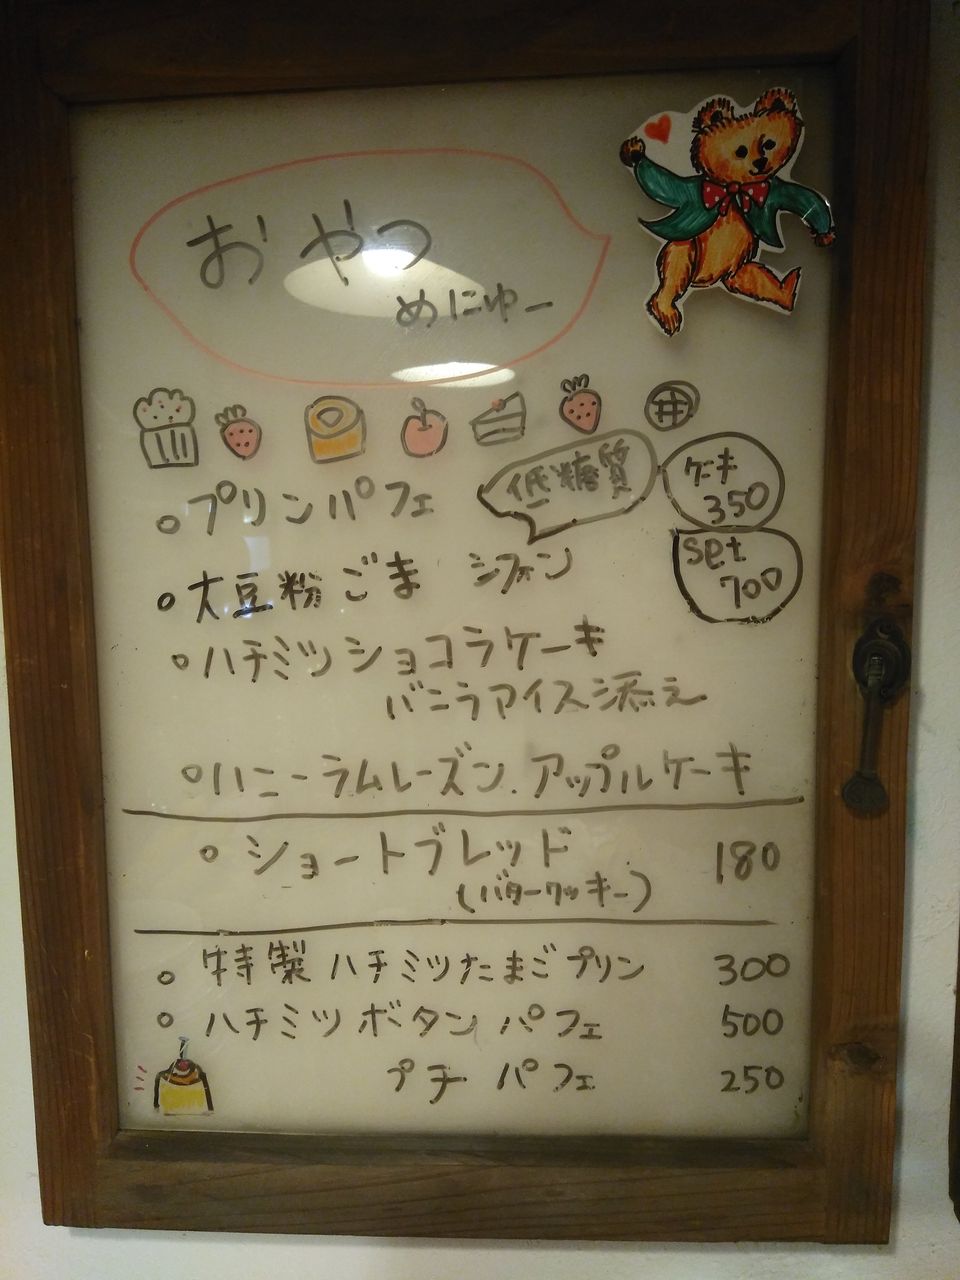 おやつ
めにゅー
低糖質
ケーキ
350
set
700
○プリンパフェ
○大豆粉ごま シフォン
○ハチミツショコラケーキ
バニラアイス添え
○ハニーラムレーズン.アップルケーキ
○ショートブレッド 180
(バタークッキー)
○特製ハチミツたまごプリン 300
○ハチミツボタンパフェ 500
プチパフェ 250